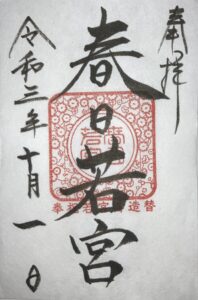 奉拝
春日若宮
令和三年十月一日